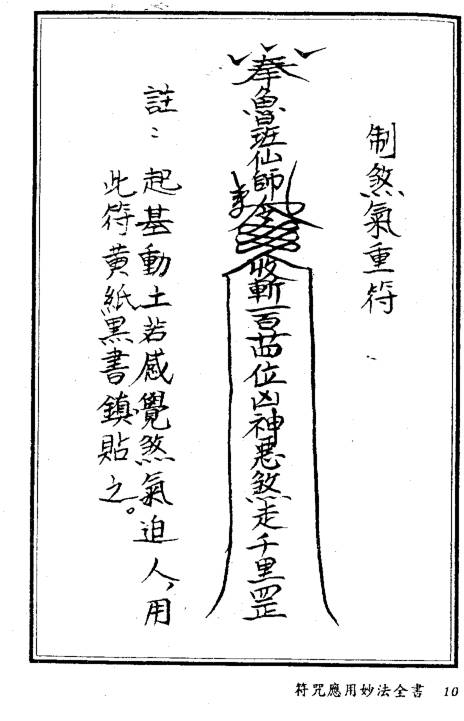 制煞氣重符
奉魯班仙師令收斬一百廿四位凶神惡煞走千里罡
註：起基動土若感覺煞氣迫人，用
此符黄紙黑書鎮貼之。
符咒應用妙法全書 10